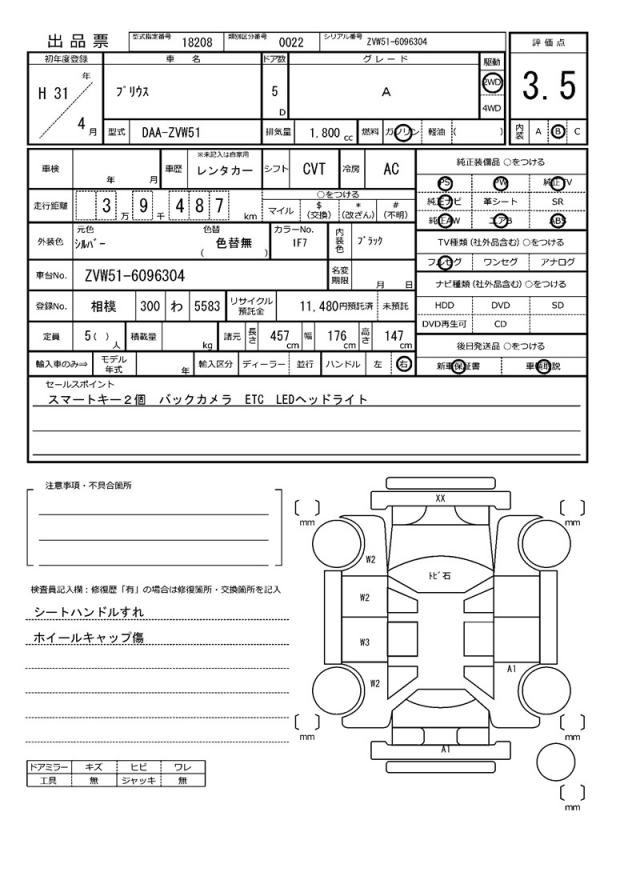 出品票 型式指定番号 18208 類別区分番号 0022 シリアル番号 ZVW51-6096304
初年度登録 車 名 ドア数 グレード 駆動 評価点
H 31 年 4 月 プリウス 5 D A 2WD 4WD 3.5
型式 DAA-ZVW51 排気量 1.800 cc 燃料 ガソリン 軽油 ( ) 内装 A B C
車検 年 月 車歴 ※未記入は自家用 レンタカー シフト CVT 冷房 AC
走行距離 3 万 9 千 4 8 7 km ○をつける マイル $ (交換) * (改ざん) # (不明)
外装色 元色 シルバー 色替 色替無 ( ) カラーNo. 1F7 内装色 ブラック
車台No. ZVW51-6096304 名変期限 月 日
登録No. 相模 300 わ 5583 リサイクル預託金 11,480円預託済 未預託
定員 5( ) 人 積載量 kg 諸元 長さ 457 cm 幅 176 cm 高さ 147 cm
輸入車のみ⇒ モデル年式 年 輸入区分 ディーラー 並行 ハンドル 左 右
純正装備品 ○をつける
PS PW 純正TV
純正ナビ 革シート SR
純正AW エアB ABS
TV種類 (社外品含む) ○をつける
フルセグ ワンセグ アナログ
ナビ種類 (社外品含む) ○をつける
HDD DVD SD
DVD再生可 CD
後日発送品 ○をつける
新車保証書 車輌取説
セールスポイント
スマートキー2個 バックカメラ ETC LEDヘッドライト
注意事項・不具合箇所
検査員記入欄：修復歴「有」の場合は修復箇所・交換箇所を記入
シートハンドルすれ
ホイールキャップ傷
ドアミラー キズ ヒビ ワレ
工具 無 ジャッキ 無
XX
mm mm
W2
トビ石
W2
W3
W2 A1
mm mm
A1
mm